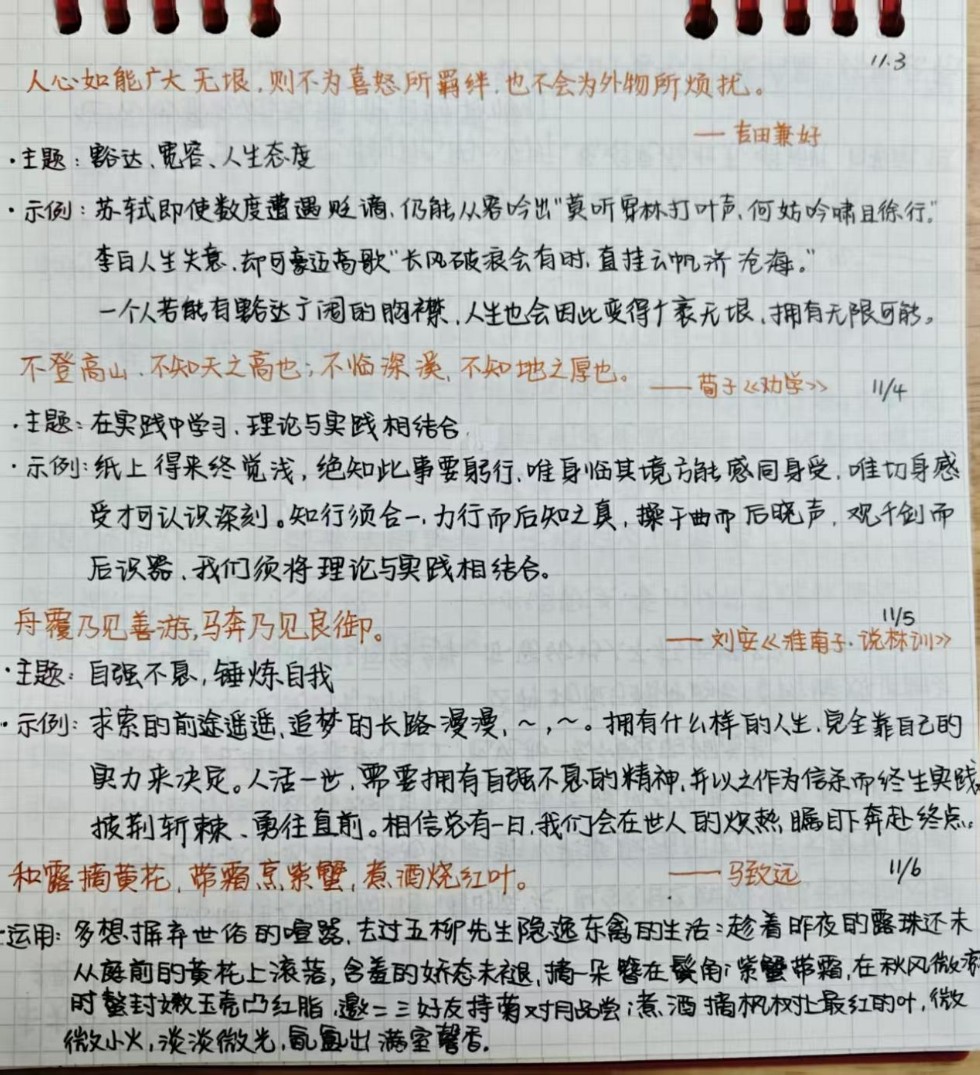 11.3
人心如能广大无垠,则不为喜怒所羁绊,也不会为外物所烦扰。
—吉田兼好
·主题:豁达、宽容、人生态度
·示例:苏轼即使数度遭遇贬谪,仍能从容吟出"莫听穿林打叶声,何妨吟啸且徐行。"
李白人生失意,却可豪迈高歌"长风破浪会有时,直挂云帆济沧海。"
一个人若能有豁达广阔的胸襟,人生也会因此变得广袤无垠,拥有无限可能。
不登高山、不知天之高也;不临深溪,不知地之厚也。——荀子《劝学》 11/4
·主题:在实践中学习、理论与实践相结合
·示例:纸上得来终觉浅,绝知此事要躬行,唯身临其境方能感同身受,唯切身感
受才可认识深刻。知行须合一,力行而后知之真,操千曲而后晓声,观千剑而
后识器、我们须将理论与实践相结合。
11/5
舟覆乃见善游,马奔乃见良御。——刘安《淮南子·说林训》
·主题:自强不息,锤炼自我
·示例:求索的前途遥遥,追梦的长路漫漫,~,~。拥有什么样的人生,完全靠自己的
实力来决定。人活一世,需要拥有自强不息的精神,并以之作为信条而终生实践。
披荆斩棘、勇往直前。相信总有一日,我们会在世人的炽热瞩目下奔赴终点。
和露摘黄花,带霜烹紫蟹,煮酒烧红叶。——马致远 11/6
·运用:多想摒弃世俗的喧嚣,去过五柳先生隐逸东篱的生活:趁着昨夜的露珠还未
从庭前的黄花上滚落,含羞的娇态未褪,摘一朵簪在鬓角;紫蟹带霜,在秋风微凉
时螯封嫩玉壳凸红脂,邀二三好友持菊对月品尝;煮酒摘枫树上最红的叶,微
微小火,淡淡微光,氤氲出满室馨香。